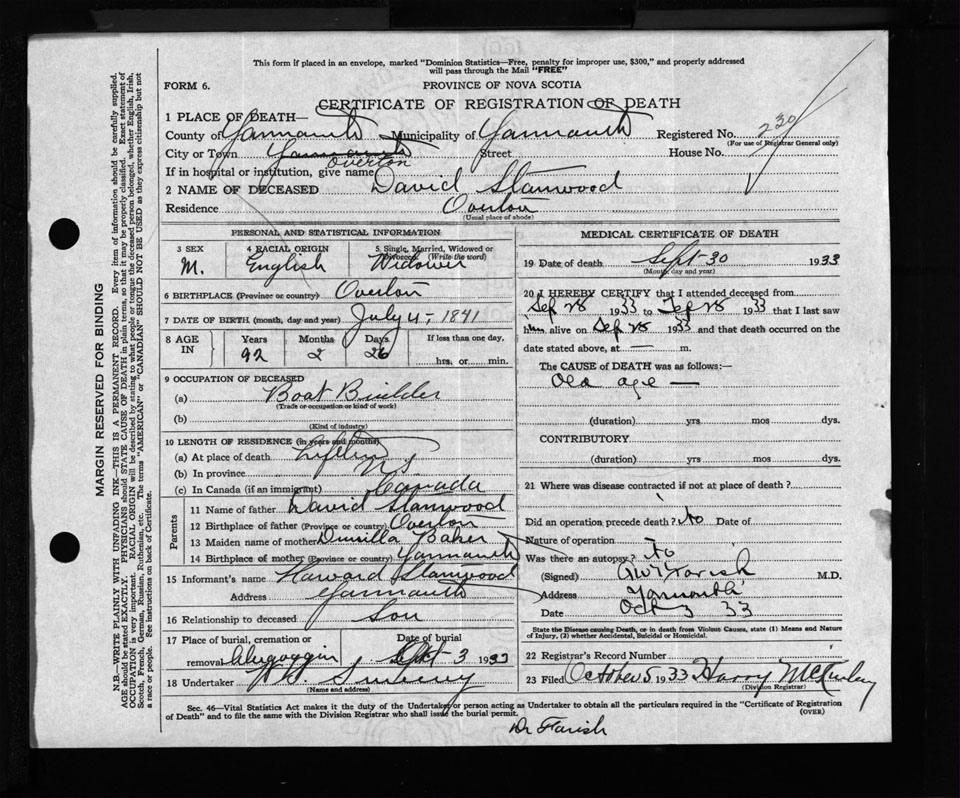 This form if placed in an envelope, marked "Dominion Statistics—Free, penalty for improper use, $300," and properly addressed
will pass through the Mail "FREE"
FORM 6.
PROVINCE OF NOVA SCOTIA
CERTIFICATE OF REGISTRATION OF DEATH
1 PLACE OF DEATH—
County of Yarmouth Municipality of Yarmouth Registered No. 230
(For use of Registrar General only)
City or Town Yarmouth Street House No.
Overton
If in hospital or institution, give name
2 NAME OF DECEASED David Stanwood
Residence Overton
(Usual place of abode)
PERSONAL AND STATISTICAL INFORMATION
3 SEX 4 RACIAL ORIGIN 5 Single, Married, Widowed or Divorced (Write the word)
M. English Widower
6 BIRTHPLACE (Province or country) Overton
7 DATE OF BIRTH (month, day and year) July 4, 1841
8 AGE IN Years Months Days If less than one day,
92 2 26 hrs. or min.
9 OCCUPATION OF DECEASED
(a) Boat Builder
(Trade or occupation or kind of work)
(b)
(Kind of industry)
10 LENGTH OF RESIDENCE (in years and months)
(a) At place of death Lifetime
(b) In province N S
(c) In Canada (if an immigrant) Canada
Parents
11 Name of father David Stanwood
12 Birthplace of father (Province or country) Overton
13 Maiden name of mother Drusilla Baker
14 Birthplace of mother (Province or country) Yarmouth
15 Informant's name Harvard Stanwood
Address Yarmouth
16 Relationship to deceased Son
17 Place of burial, cremation or Date of burial
removal Chegoggin Oct 3 1933
18 Undertaker
(Name and address)
MEDICAL CERTIFICATE OF DEATH
19 Date of death Sept 30 1933
(Month, day and year)
20 I HEREBY CERTIFY that I attended deceased from
Sep 28 1933 to Sep 28 1933 that I last saw
him alive on Sep 28 1933 and that death occurred on the
date stated above, at — m.
The CAUSE of DEATH was as follows:—
Old age —
(duration) yrs mos dys.
CONTRIBUTORY
(duration) yrs mos dys.
21 Where was disease contracted if not at place of death?
Did an operation precede death? No Date of
Nature of operation
Was there an autopsy? No
(Signed) Farish M.D.
Address Yarmouth
Date Oct 3 33
State the Disease causing Death, or in death from Violent Causes, state (1) Means and Nature
of Injury, (2) whether Accidental, Suicidal or Homicidal.
22 Registrar's Record Number
23 Filed October 5 1933 Harry
(Division Registrar)
Sec. 46—Vital Statistics Act makes it the duty of the Undertaker or person acting as Undertaker to obtain all the particulars required in the "Certificate of Registration
of Death" and to file the same with the Division Registrar who shall issue the burial permit.
(OVER)
Dr Farish
MARGIN RESERVED FOR BINDING
N.B.—WRITE PLAINLY WITH UNFADING INK—THIS IS A PERMANENT RECORD. Every item of information should be carefully supplied.
AGE should be stated EXACTLY. PHYSICIANS should STATE CAUSE OF DEATH in plain terms, so that it may be properly classified. Exact statement of
OCCUPATION is very important. RACIAL ORIGIN will be described by stating to what people or tongue the deceased person belonged, whether English, Irish,
Scotch, French, German, Russian, Ruthenian, etc. The terms "AMERICAN" or "CANADIAN" SHOULD NOT BE USED as they express citizenship but not
a race or people. See instructions on back of Certificate.